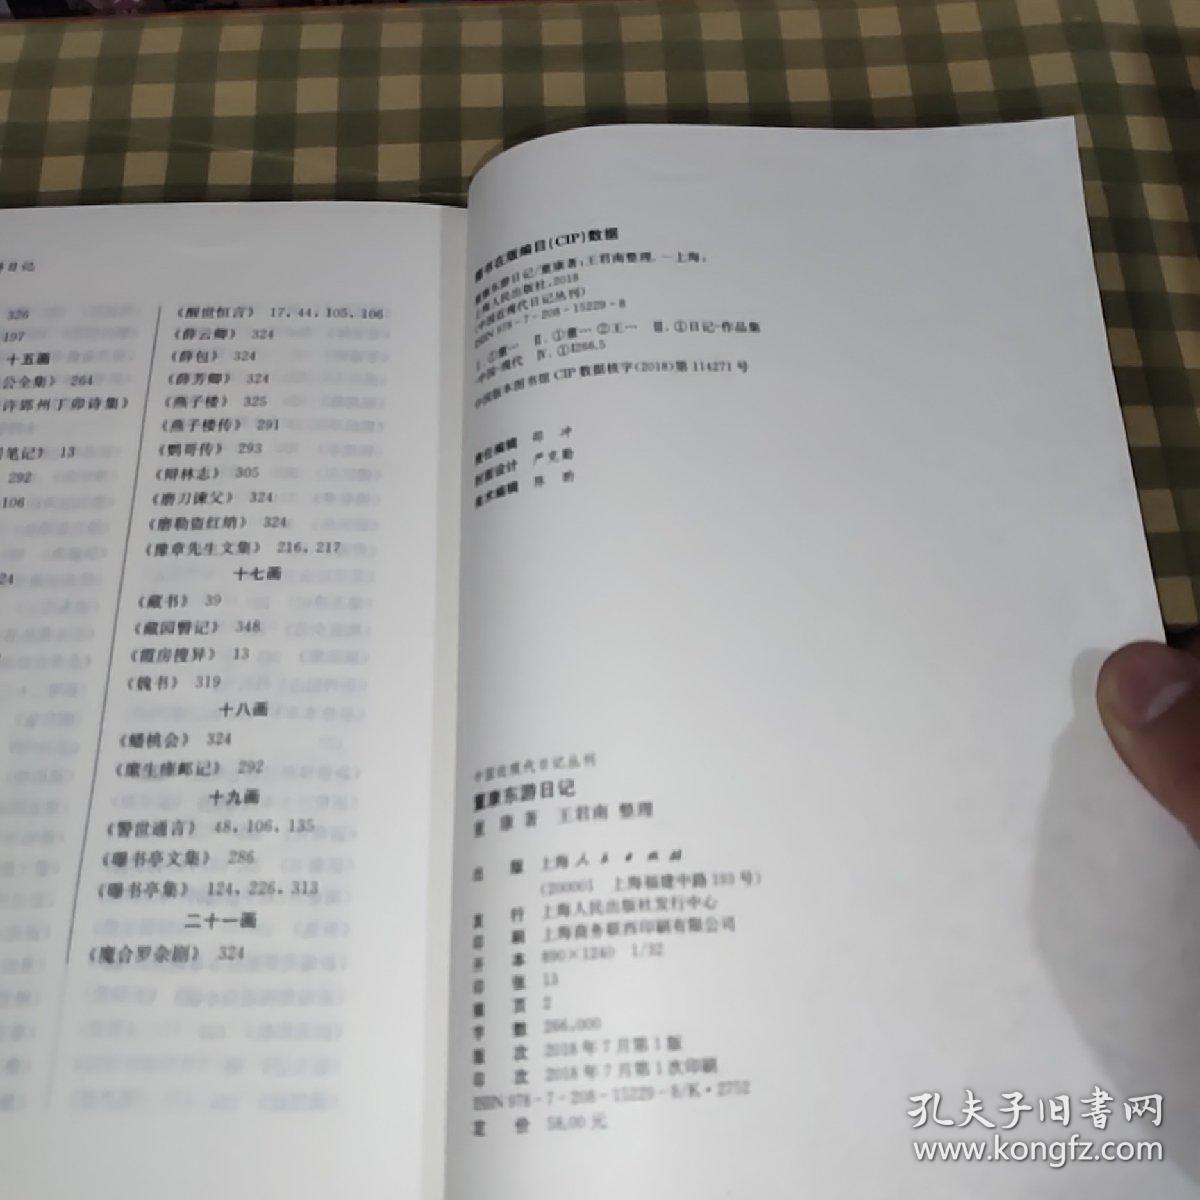 游日记
326
197
十五画
公全集》 264
许郢州丁卯诗集》
笔记》 13
292
106
24
《醒世恒言》 17,44,105,106
《薛云卿》 324
《薛包》 324
《薛芳卿》 324
《燕子楼》 325
《燕子楼传》 291
《鹦哥传》 293
《辩林志》 305
《磨刀谏父》 324
《磨勒盗红绡》 324
《豫章先生文集》 216,217
十七画
《藏书》 39
《藏园瞥记》 348
《霞房搜异》 13
《魏书》 319
十八画
《蟠桃会》 324
《瘗邮记》 292
十九画
《警世通言》 48,106,135
《曝书亭文集》 286
《曝书亭集》 124,226,313
二十一画
《魔合罗杂剧》 324
图书在版编目(CIP)数据
董康东游日记/董康著;王君南整理.—上海:
上海人民出版社,2018
(中国近现代日记丛刊)
ISBN 978-7-208-15229-8
Ⅰ.①董… Ⅱ.①董… ②王… Ⅲ.①日记-作品集
-中国-现代 Ⅳ.①I266.5
中国版本图书馆CIP数据核字(2018)第114271号
责任编辑 邵 冲
封面设计 严克勤
美术编辑 陈 酌
中国近现代日记丛刊
董康东游日记
董 康 著 王君南 整理
出 版 上海人民出版社
(200001 上海福建中路193号)
发 行 上海人民出版社发行中心
印 刷 上海商务联西印刷有限公司
开 本 890×1240 1/32
印 张 13
插 页 2
字 数 266,000
版 次 2018年7月第1版
印 次 2018年7月第1次印刷
ISBN 978-7-208-15229-8/K·2752
定 价 58.00元
孔夫子旧书网
www.kongfz.com